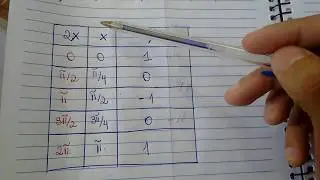 2x x
0 0 1
π/2 π/4 0
π π/2 -1
3π/2 3π/4 0
2π π 1